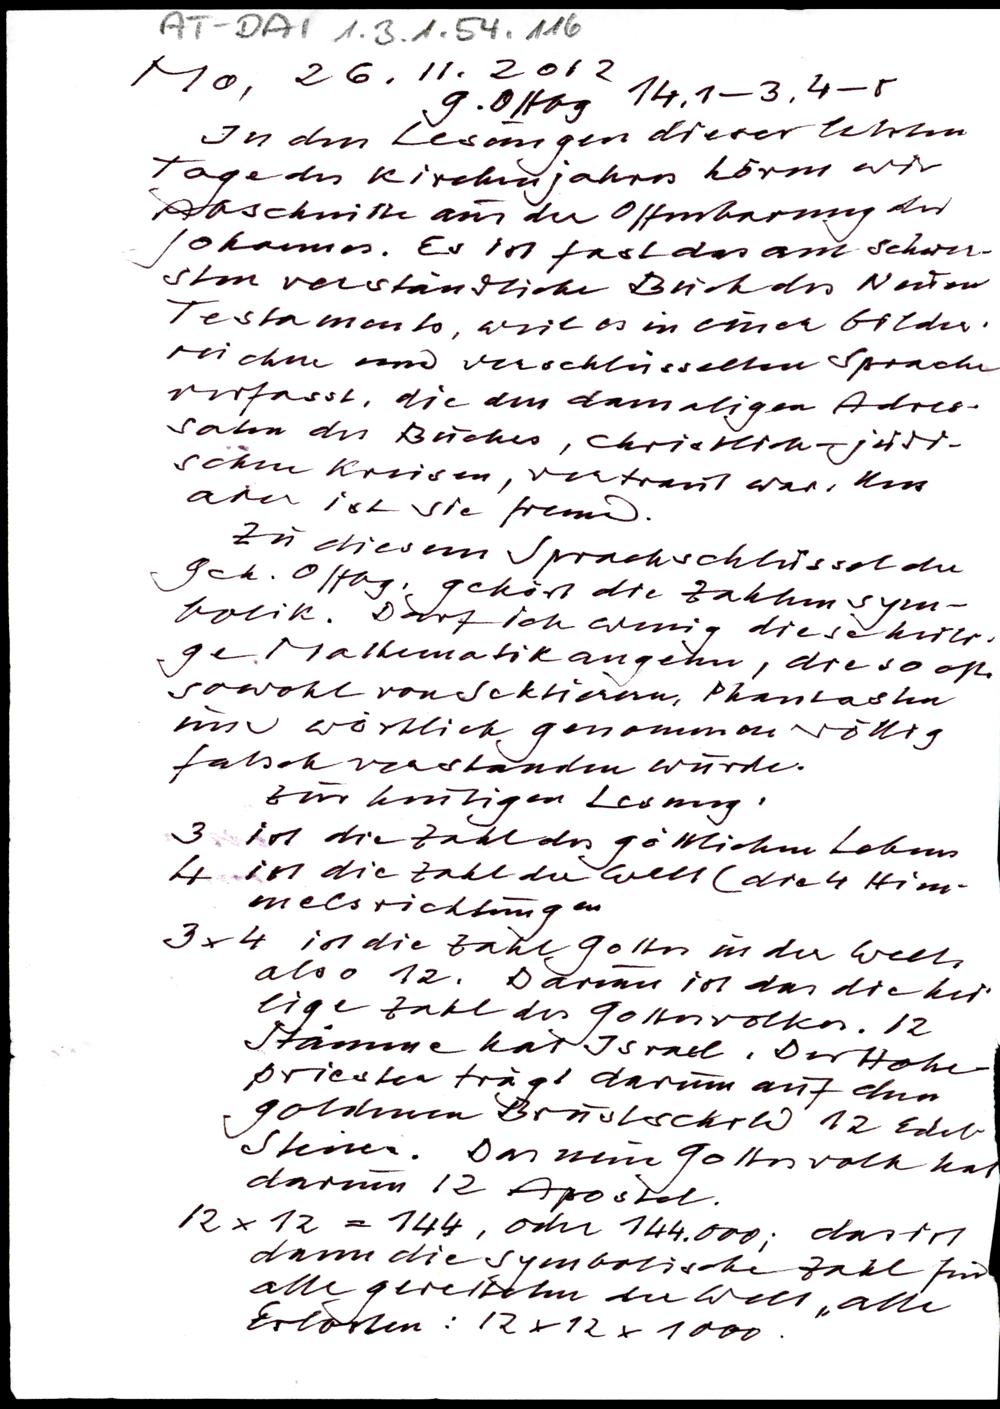 AT-DAI 1.3.1.54.116
Mo, 26.11.2012
g. Offbg 14,1-3.4-5
In den Lesungen dieser letzten
Tage des Kirchenjahres hören wir
Abschnitte aus der Offenbarung des
Johannes. Es ist fast das am schwer-
sten verständliche Buch des Neuen
Testaments, weil es in einer bilder-
reichen und verschlüsselten Sprache
verfasst, die den damaligen Adres-
saten des Buches, christlich-jüdi-
schen Kreisen, vertraut war. Uns
aber ist sie fremd.
Zu diesem Sprachschlüssel der
Geh. Offbg. gehört die Zahlensym-
bolik. Darf ich wenig diese heili-
ge Mathematik angehn, die so oft
sowohl von Sektierern, Phantasten
und wörtlich genommen völlig
falsch verstanden wurde.
Zur heutigen Lesung:
3 ist die Zahl des göttlichen Lebens
4 ist die Zahl der Welt (die 4 Him-
melsrichtungen
3x4 ist die Zahl Gottes in der Welt,
also 12. Darum ist das die hei
lige Zahl des Gottesvolkes. 12
Stämme hat Israel. Der Hohe-
priester trägt darum auf dem
goldenen Brustschild 12 Edel-
Steine. Das neue Gottesvolk hat
darum 12 Apostel.
12 x 12 = 144, oder 144.000; das ist
dann die symbolische Zahl für
alle geretteten der Welt, alle
Erlösten: 12x12x1000.